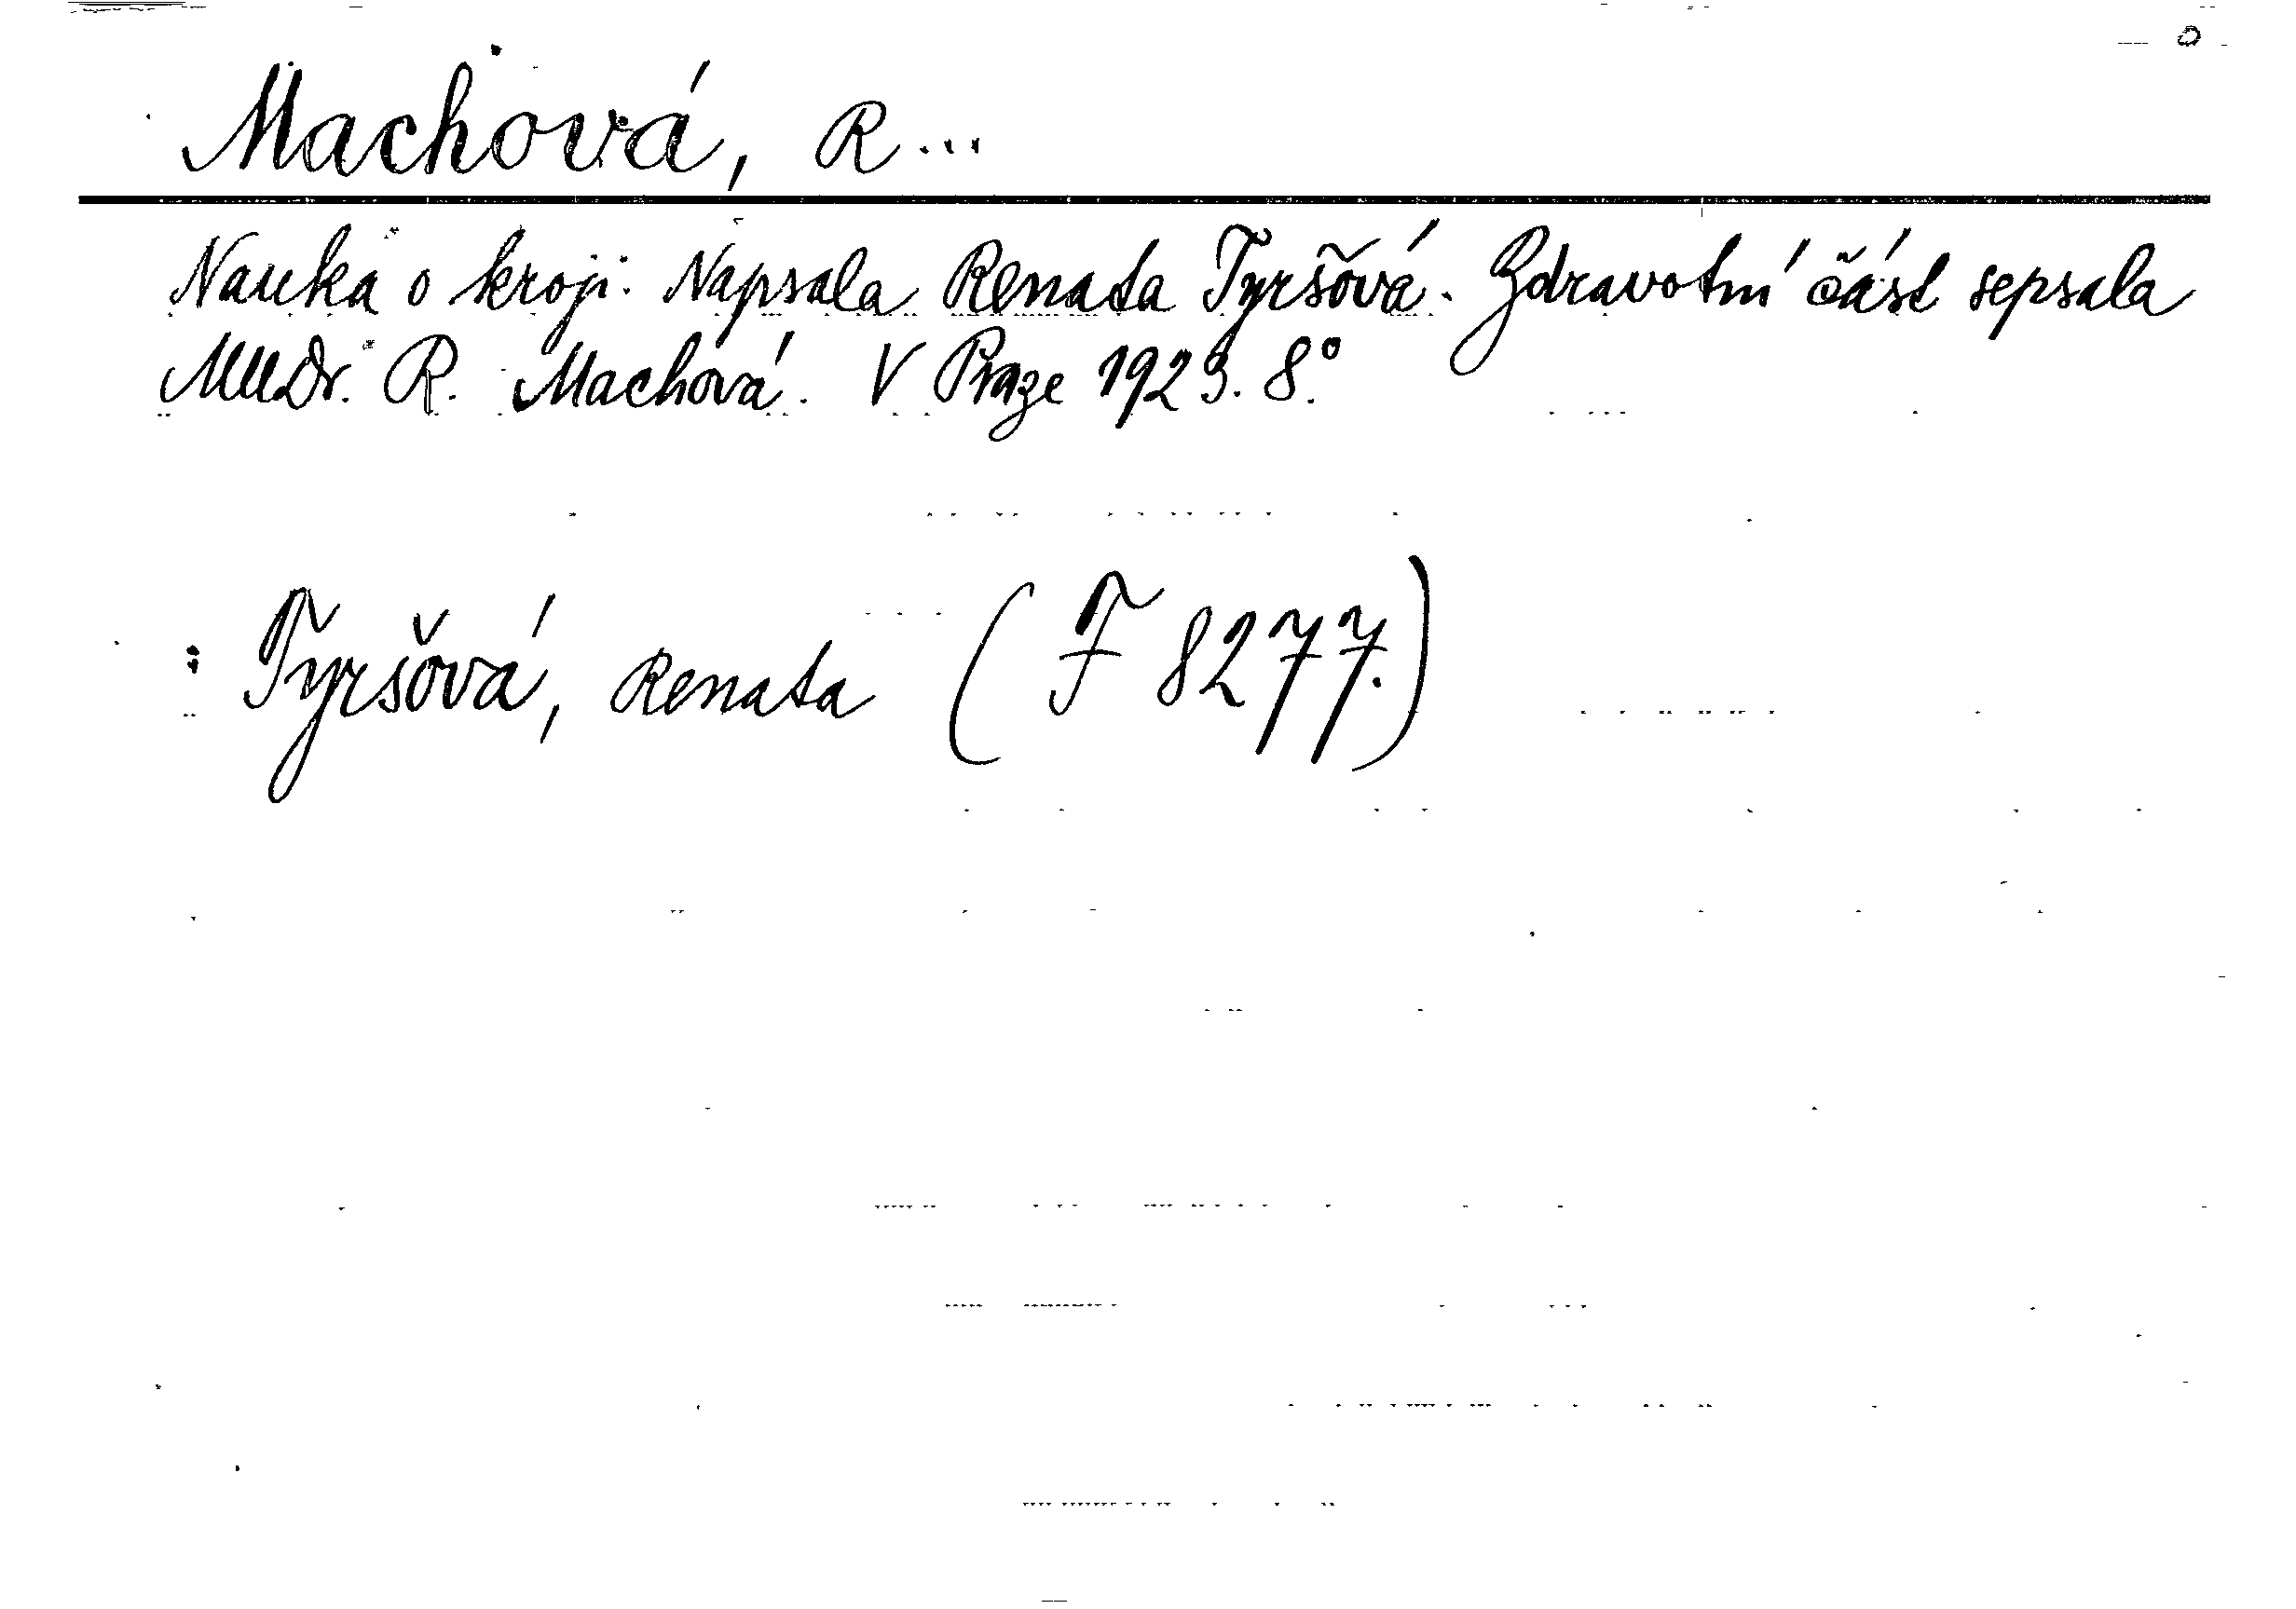 Machová, R...
Nauka o kroji. Napsala Renata Tyršová. Zdravotní část sepsala
MUDr. R. Machová. V Praze 1923. 8°.
: Tyršová, Renata (F 8277.)